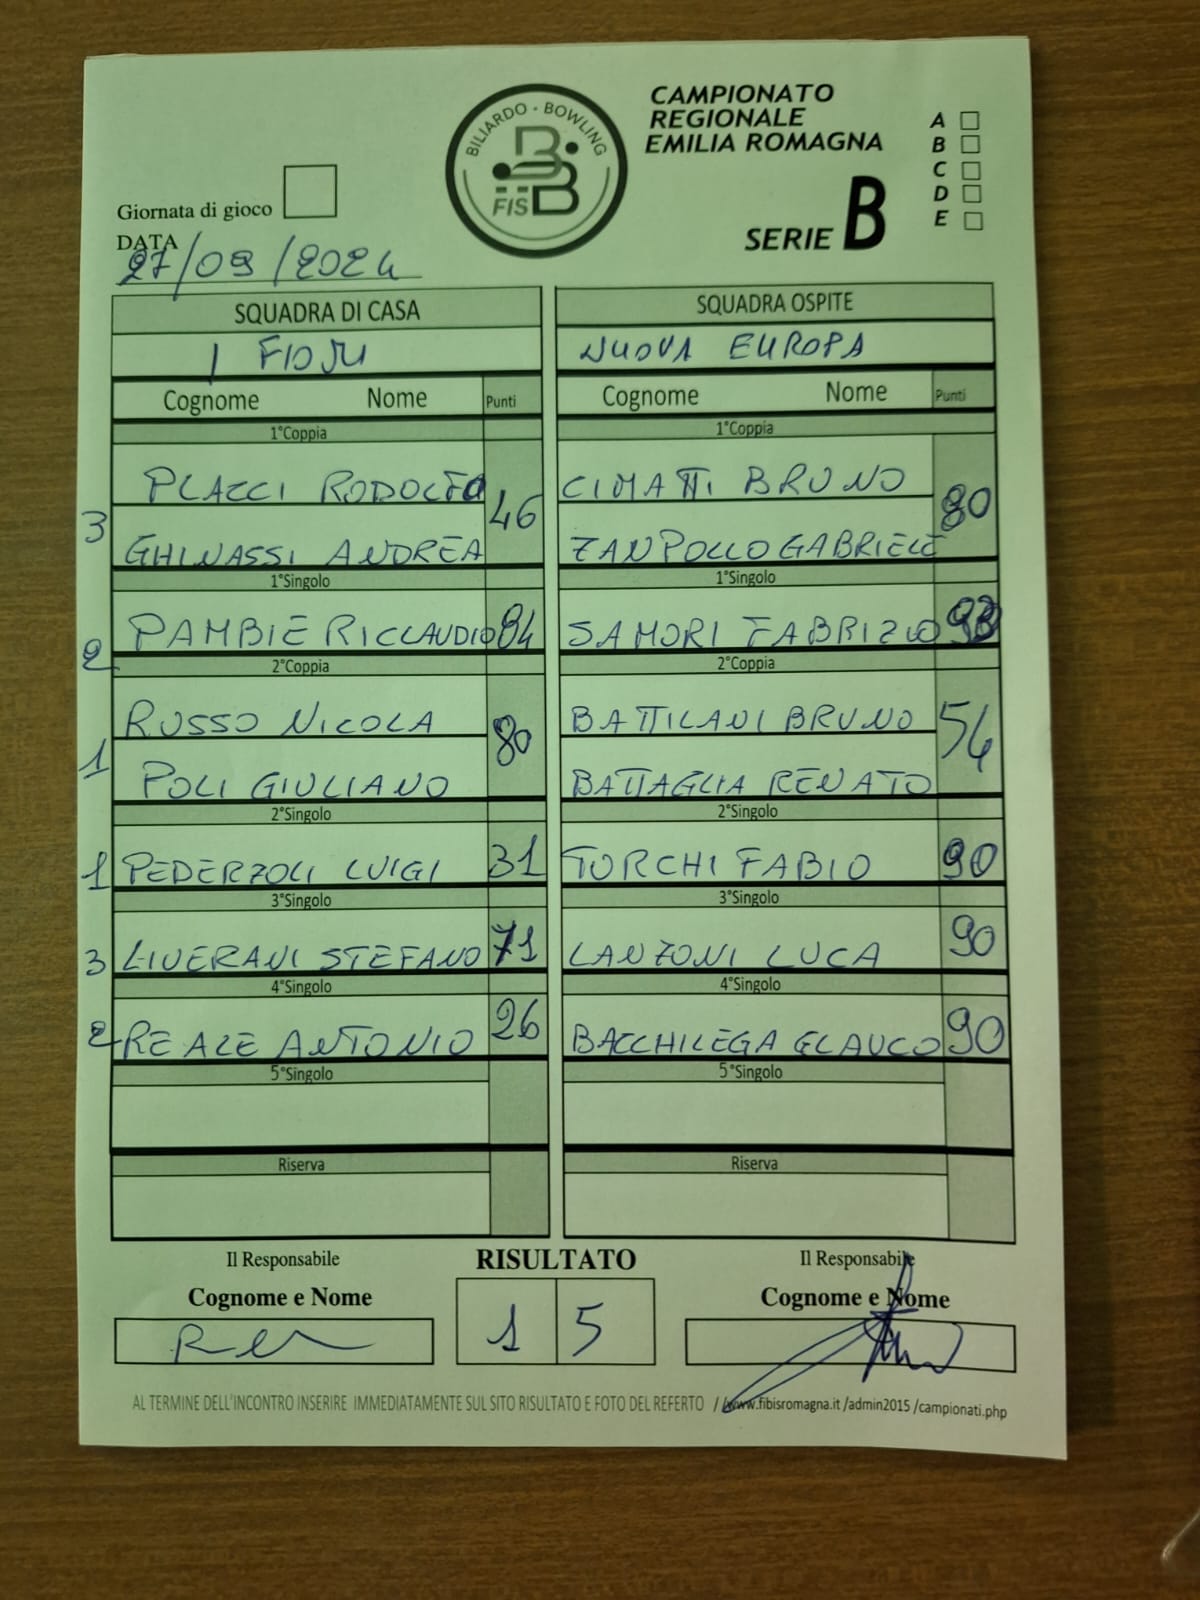 BILIARDO - BOWLING
FIS B
CAMPIONATO
REGIONALE
EMILIA ROMAGNA
SERIE B
A
B
C
D
E
Giornata di gioco
DATA
27/09/2024
SQUADRA DI CASA SQUADRA OSPITE
I FIORI NUOVA EUROPA
Cognome Nome Punti Cognome Nome Punti
1°Coppia 1°Coppia
PLACCI RODOLFO CIMATTI BRUNO
3 46 80
GHINASSI ANDREA ZANPOLLO GABRIELE
1°Singolo 1°Singolo
2 PAMBIERI CLAUDIO 84 SAMORI FABRIZIO
2°Coppia 2°Coppia
RUSSO NICOLA BATTILANI BRUNO
1 80 54
POLI GIULIANO BATTAGLIA RENATO
2°Singolo 2°Singolo
1 PEDERZOLI LUIGI 31 TORCHI FABIO 90
3°Singolo 3°Singolo
3 LIVERANI STEFANO 71 LANZONI LUCA 90
4°Singolo 4°Singolo
2 REALE ANTONIO 26 BACCHILEGA GLAUCO 90
5°Singolo 5°Singolo
Riserva Riserva
Il Responsabile RISULTATO Il Responsabile
Cognome e Nome Cognome e Nome
1 5
AL TERMINE DELL'INCONTRO INSERIRE IMMEDIATAMENTE SUL SITO RISULTATO E FOTO DEL REFERTO //www.fibisromagna.it /admin2015 /campionati.php